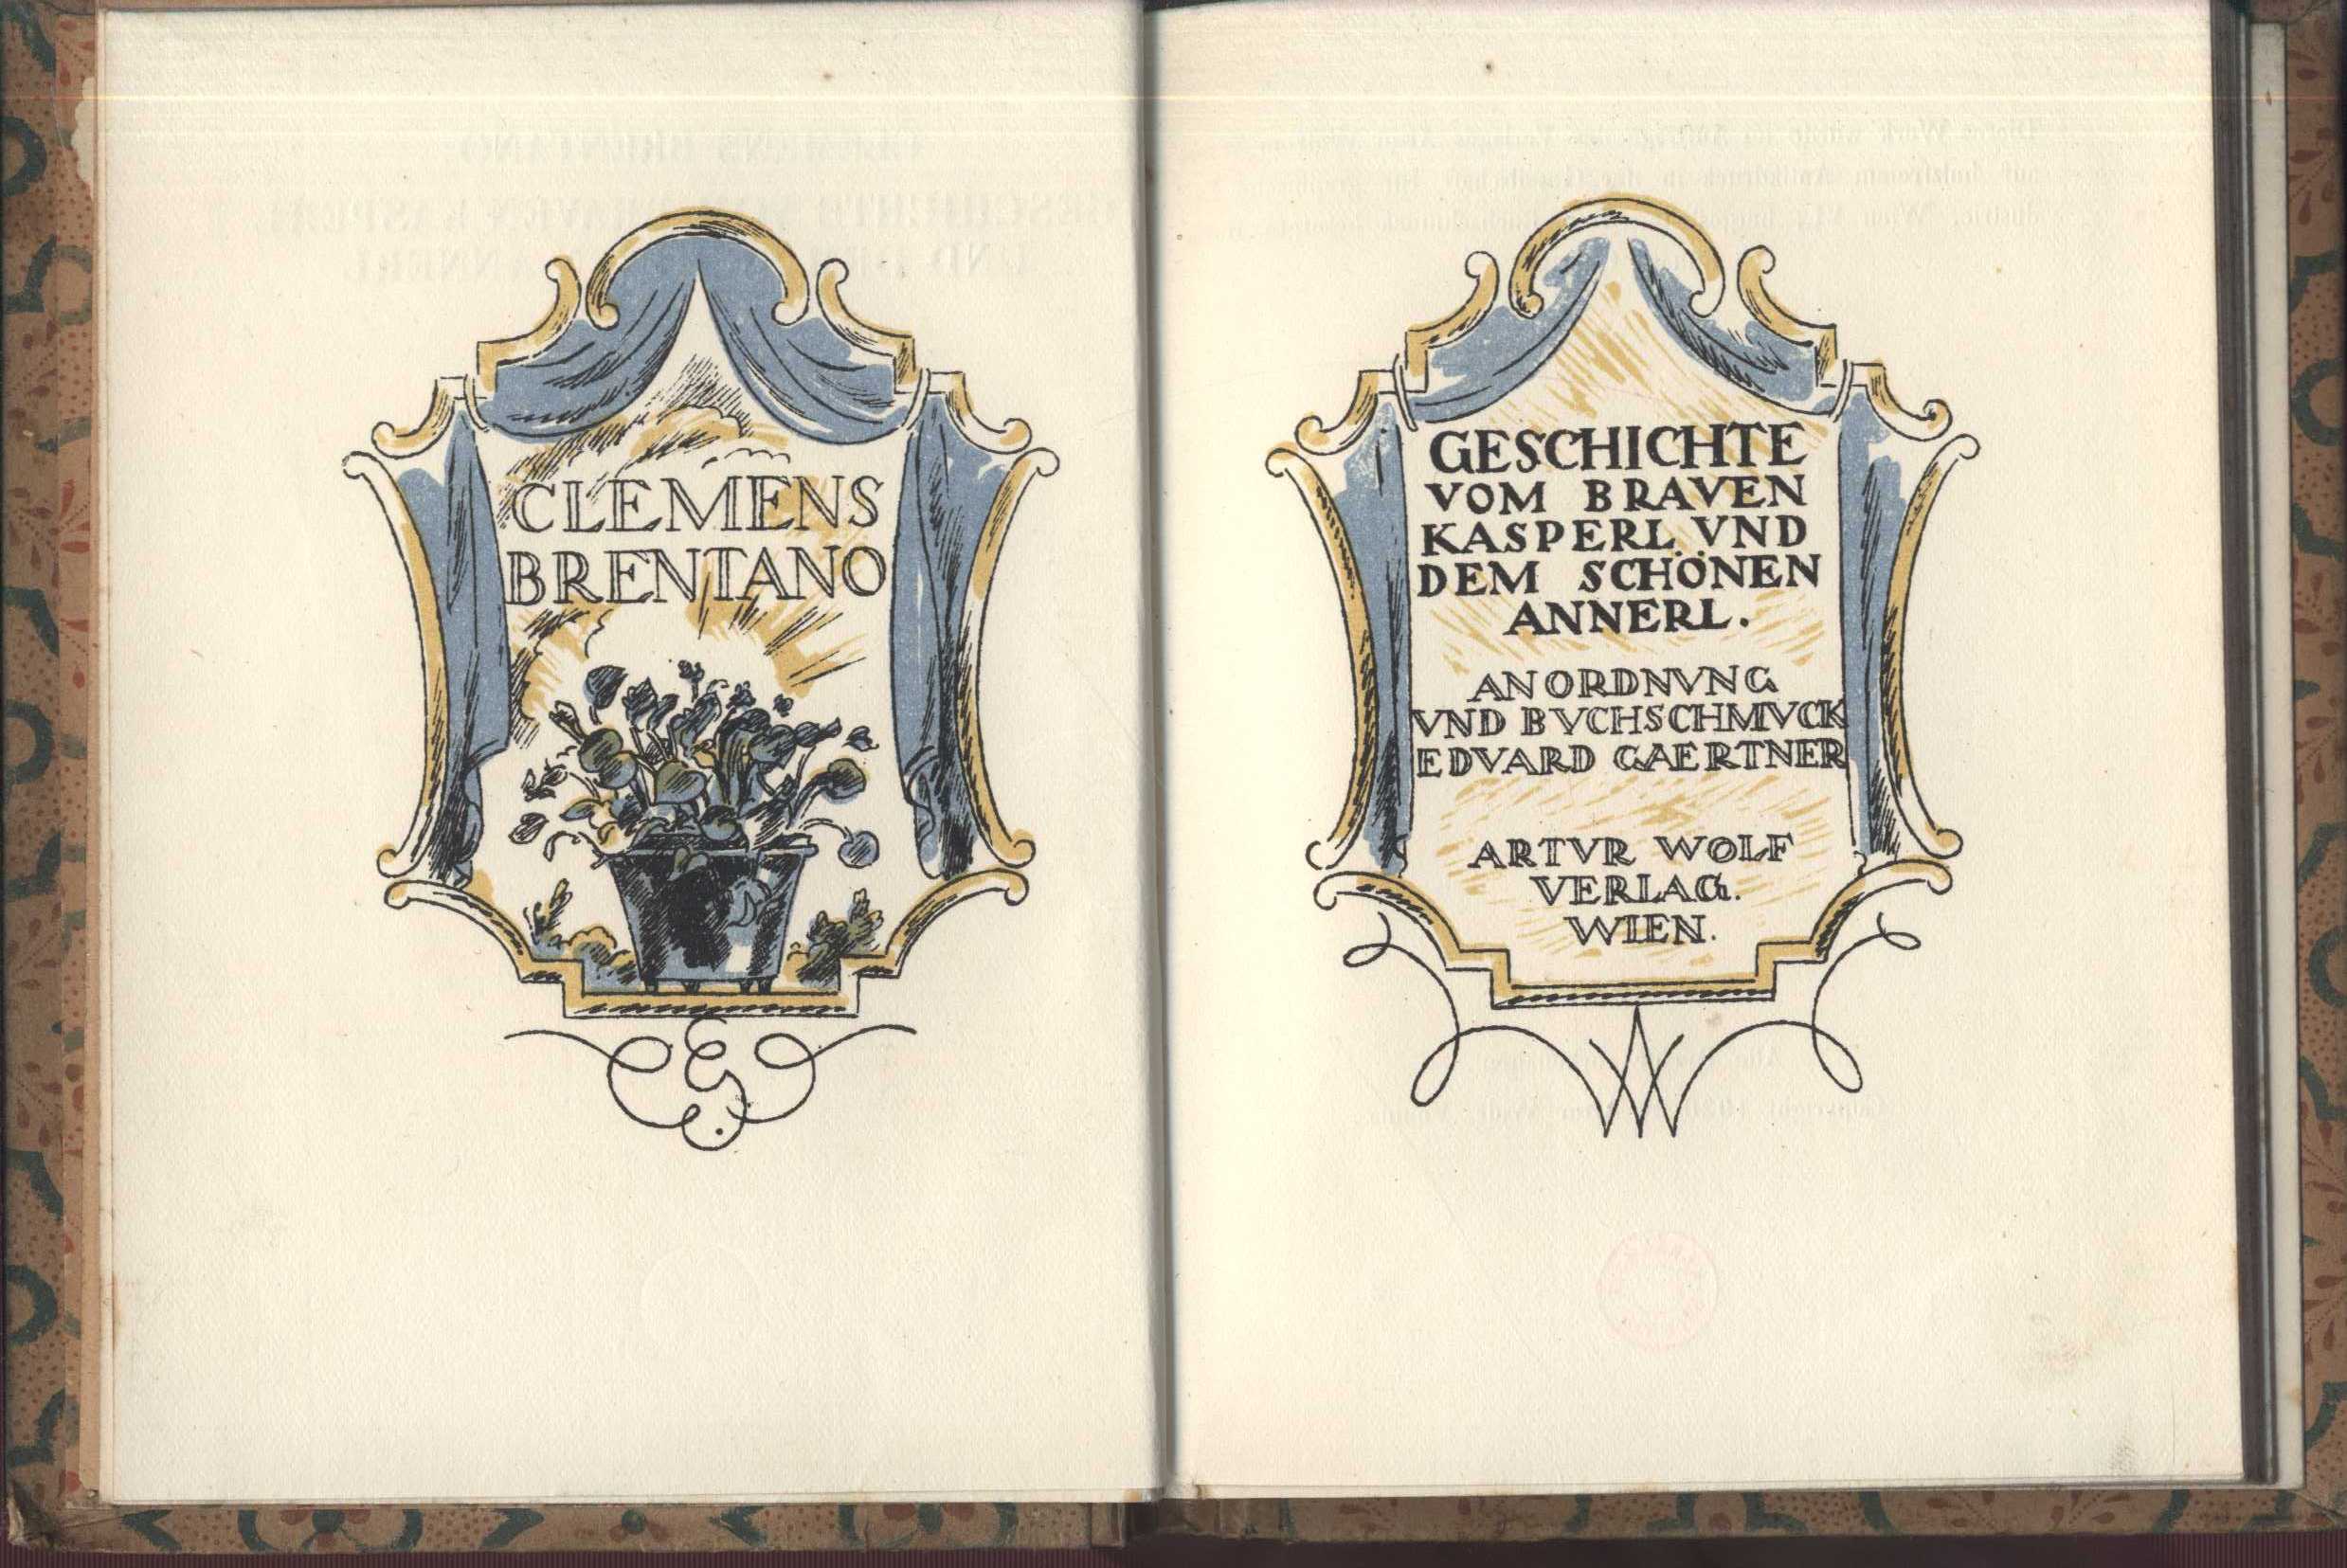 CLEMENS
BRENTANO
GESCHICHTE
VOM BRAVEN
KASPERL VND
DEM SCHÖNEN
ANNERL.
ANORDNVNG
VND BVCHSCHMVCK
EDVARD GAERTNER
ARTVR WOLF
VERLAG.
WIEN.